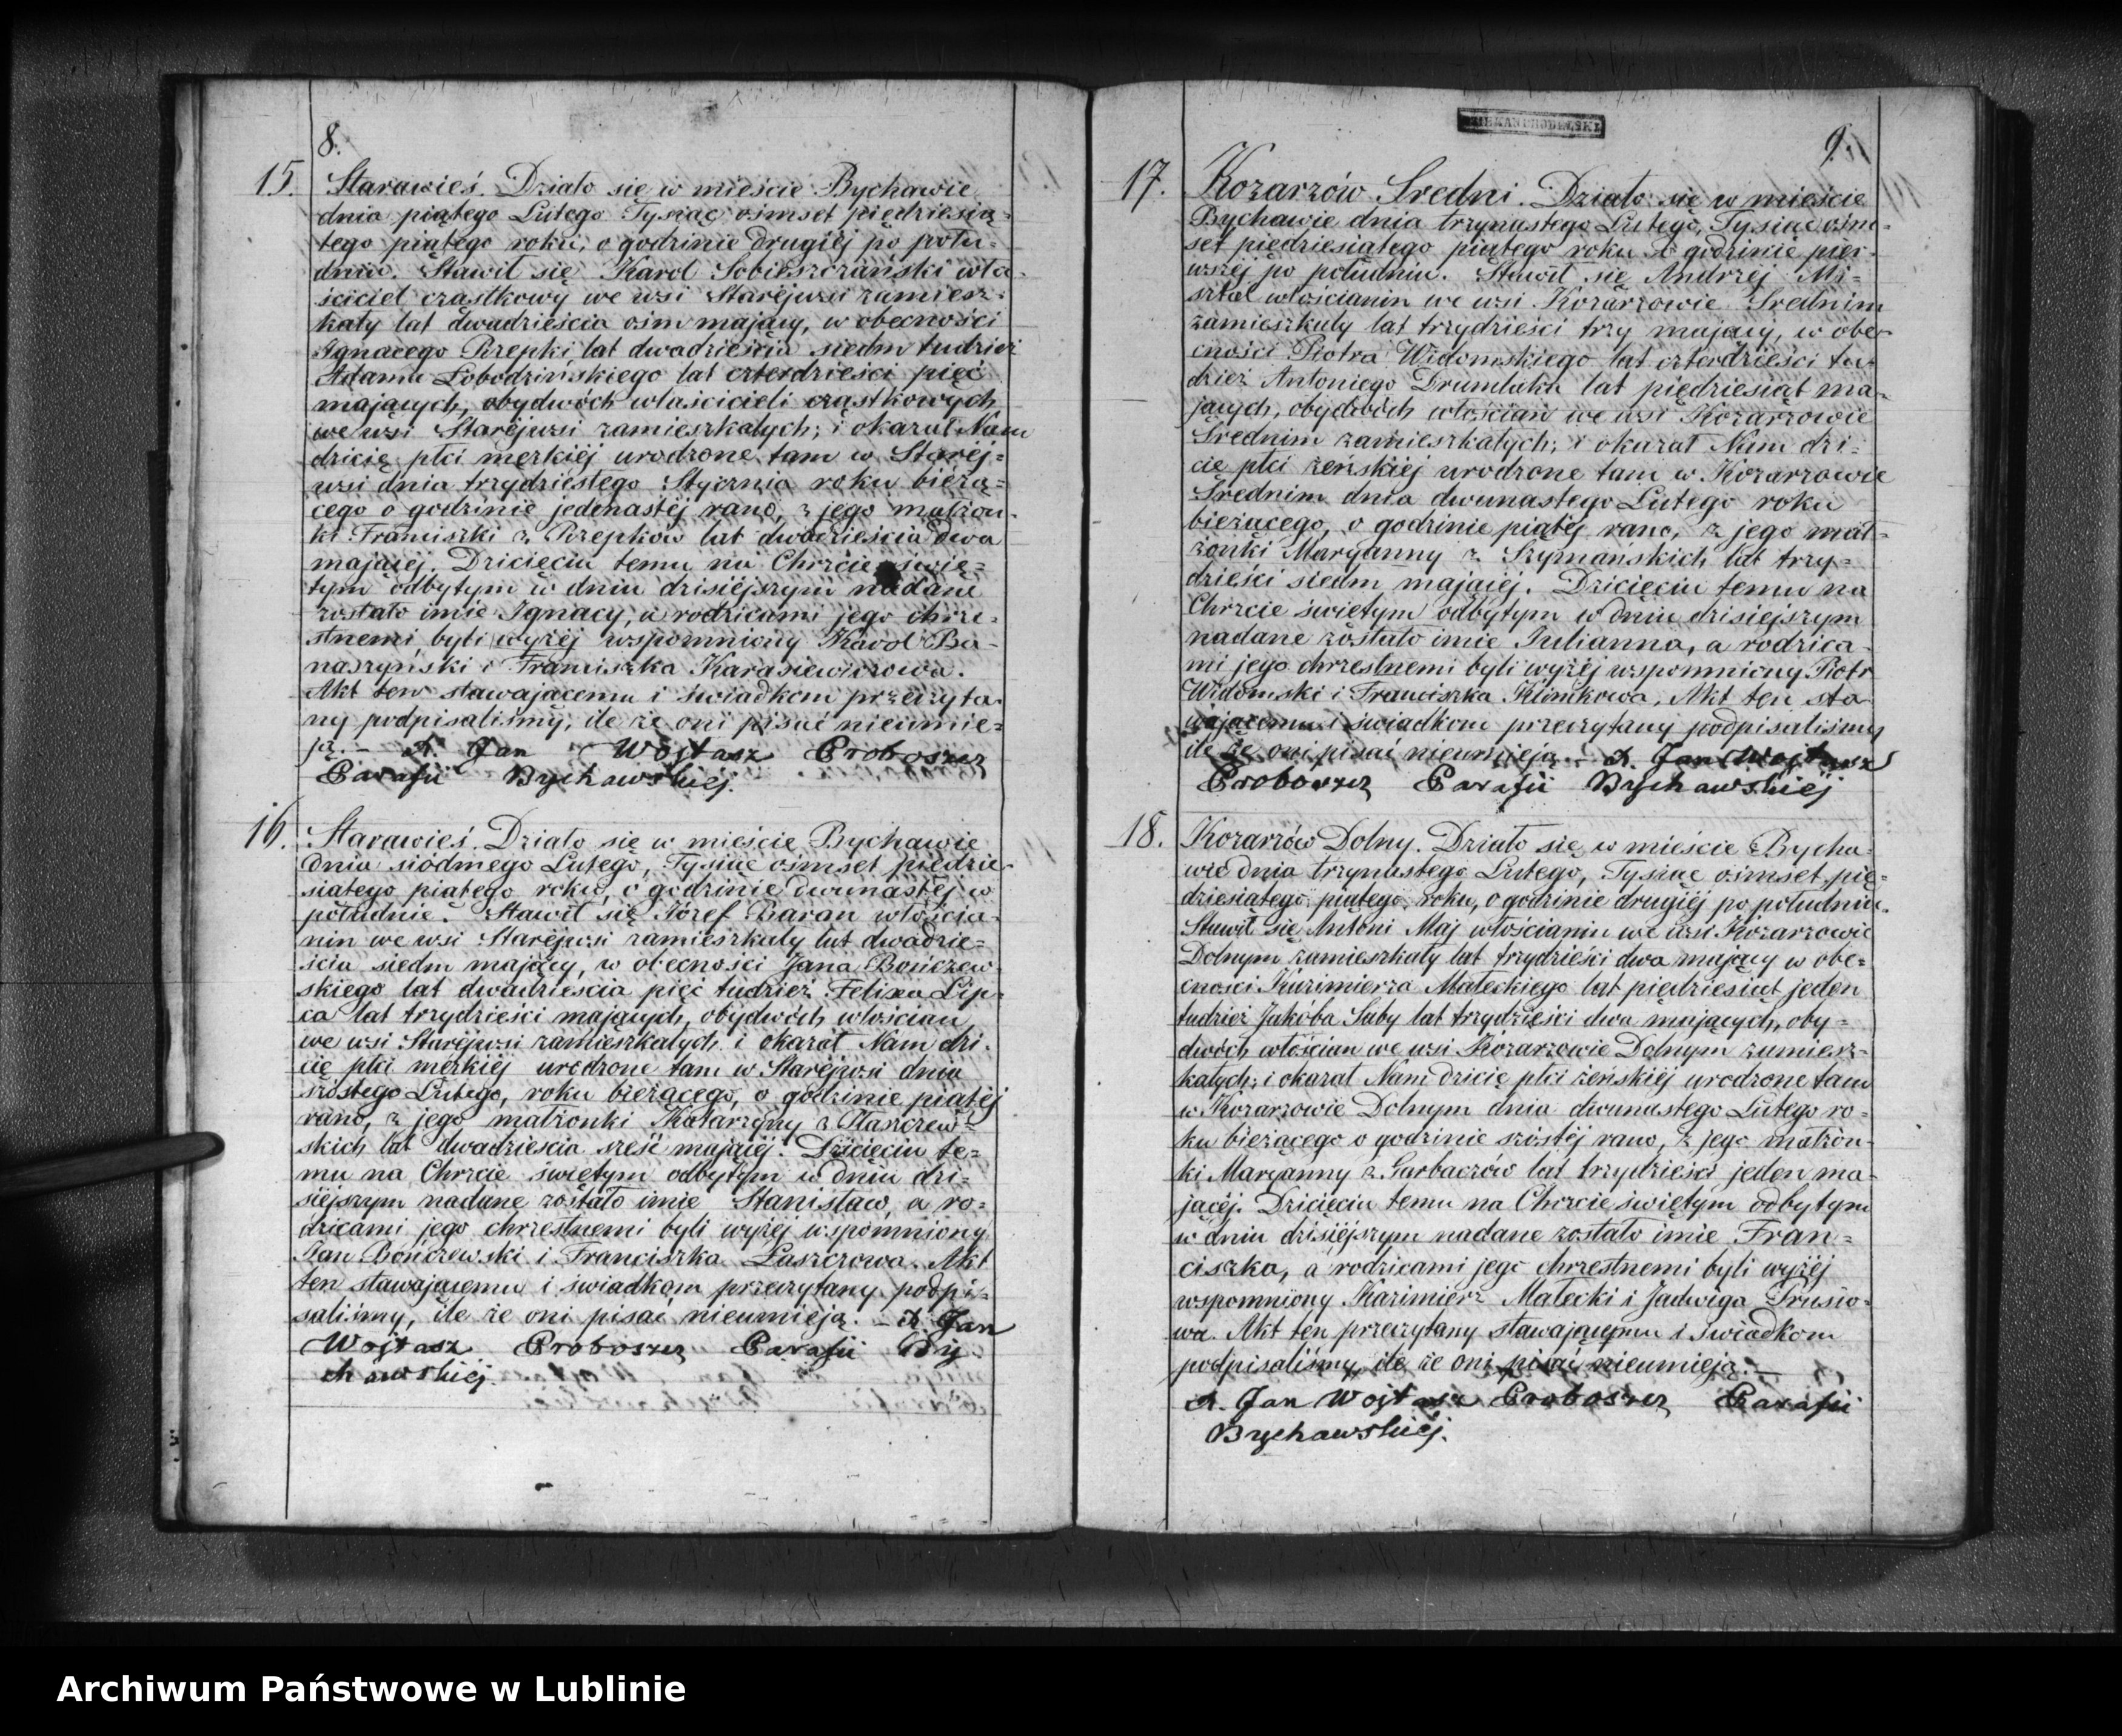 8.
15. Starawieś. Działo się w mieście Bychawie
dnia piątego Lutego Tysiąc ośmset pięździesią=
tego piątego roku, o godzinie drugiéj po połu=
dniu. Stawił się Karol Sobieszczański wła-
ściciel cząstkowy we wsi Staréjwsi zamiesz-
kały lat dwadzieścia ośm mający, w obecności
Ignacego Rzepki lat dwadzieścia siedm tudzież
Adama Łobodzińskiego lat czterdzieści pięć
mających, obydwóch właścicieli cząstkowych
we wsi Staréjwsi zamieszkałych; i okazał Nam
dziecię płci męzkiéj urodzone tam w Staréj=
wsi dnia trzydziéstego Stycznia roku bieżą=
cego o godzinie jedenastéj rano, z jego małżon-
ki Franciszki z Rzepków lat dwadzieścia dwa
mającéj. Dziecięciu temu na Chrzcie świę=
tym odbytym w dniu dzisiéjszym nadane
zostało imie Ignacy, a rodzicami jego chrze-
stnemi byli wyżéj wspomniony Karol Ba-
naszyński i Franciszka Karasiewiczowa.
Akt ten stawającemu i świadkom przeczyta-
ny podpisaliśmy, ile że oni pisać nieumie=
ją. — X. Jan Wojtasz Proboszcz
Parafii Bychawskiéj.
16. Starawieś. Działo się w mieście Bychawie
dnia siódmego Lutego, Tysiąc ośmset piędzie-
siątego piątego roku, o godzinie dwunastéj w
południe. Stawił się Józef Baran włościa-
nin we wsi Staréjwsi zamieszkały lat dwadzie=
ścia siedm mający, w obecności Jana Bończew-
skiego lat dwadzieścia pięć tudzież Felixa Lip-
ca lat trzydzieści mających, obydwóch włościan
we wsi Staréjwsi zamieszkałych i okazał Nam dzi-
cię płci męzkiéj urodzone tam w Staréjwsi dnia
szóstego Lutego, roku bieżącego, o godzinie piątéj
rano, z jego małżonki Katarzyny z Błaszczew=
skich lat dwadzieścia sześć mającéj. Dziecięciu te=
mu na Chrzcie świętym odbytym w dniu dzi=
siéjszym nadane zostało imie Stanisław, a ro=
dzicami jego chrzestnemi byli wyżéj wspomniony
Jan Bończewski i Franciszka Łuszczowa. Akt
ten stawającemu i świadkom przeczytany podpi=
saliśmy, ile że oni pisać nieumieją. — X. Jan
Wojtasz Proboszcz Parafii By
chawskiéj.
9.
17. Kozarzów Średni. Działo się w mieście
Bychawie dnia trzynastego Lutego, Tysiąc ośm-
set piędziesiątego piątego roku o godzinie pier-
wszéj po południu. Stawił się Andrzéj Mi=
sztal włościanin we wsi Kozarzowie Średnim
zamieszkały lat trzydzieści trzy mający, w obe-
cności Piotra Widomskiego lat czterdzieści tu-
dzież Antoniego Drumlaka lat piędziesiąt ma-
jących, obydwóch włościan we wsi Kozarzowie
Średnim zamieszkałych; i okazał Nam dzi-
cię płci żeńskiéj urodzone tam w Kozarzowie
Średnim dnia dwunastego Lutego roku
bieżącego, o godzinie piątéj rano, z jego mał-
żonki Maryanny z Szymańskich lat trzy=
dzieści siedm mającéj. Dziecięciu temu na
Chrzcie świętym odbytym w dniu dzisiejszym
nadane zostało imie Julianna, a rodzica-
mi jego chrzestnemi byli wyżéj wspomniony Piotr
Widomski i Franciszka Klimkowa. Akt ten sta-
wającemu i świadkom przeczytany podpisaliśmy
ile że oni pisać nieumieją. — X. Jan Wojtasz
Proboszcz Parafii Bychawskiéj
18. Kozarzów Dolny. Działo się w mieście Bycha-
wie dnia trzynastego Lutego, Tysiąc ośmset pię-
dziesiątego piątego roku, o godzinie drugiéj po południu.
Stawił się Antoni Maj włościanin we wsi Kozarzowie
Dolnym zamieszkały lat trzydzieści dwa mający w obe=
cności Kazimierza Małeckiego lat piędziesiąt jeden
tudzież Jakóba Suby lat trzydzieści dwa mających, oby=
dwóch włościan we wsi Kozarzowie Dolnym zamiesz-
kałych; i okazał Nam dzicię płci żeńskiéj urodzone tam
w Kozarzowie Dolnym dnia dwunastego Lutego ro-
ku bieżącego o godzinie szóstéj rano, z jego małżon-
ki Maryanny z Garbaczów lat trzydzieści jeden ma-
jącéj. Dziecięciu temu na Chrzcie świętym odbytym
w dniu dzisiéjszym nadane zostało imie Fran=
ciszka, a rodzicami jego chrzestnemi byli wyżéj
wspomniony Kazimierz Małecki i Jadwiga Prusio-
wa. Akt ten przeczytany stawającemu i świadkom
podpisaliśmy, ile że oni pisać nieumieją. —
X. Jan Wojtasz Proboszcz Parafii
Bychawskiéj.
Archiwum Państwowe w Lublinie